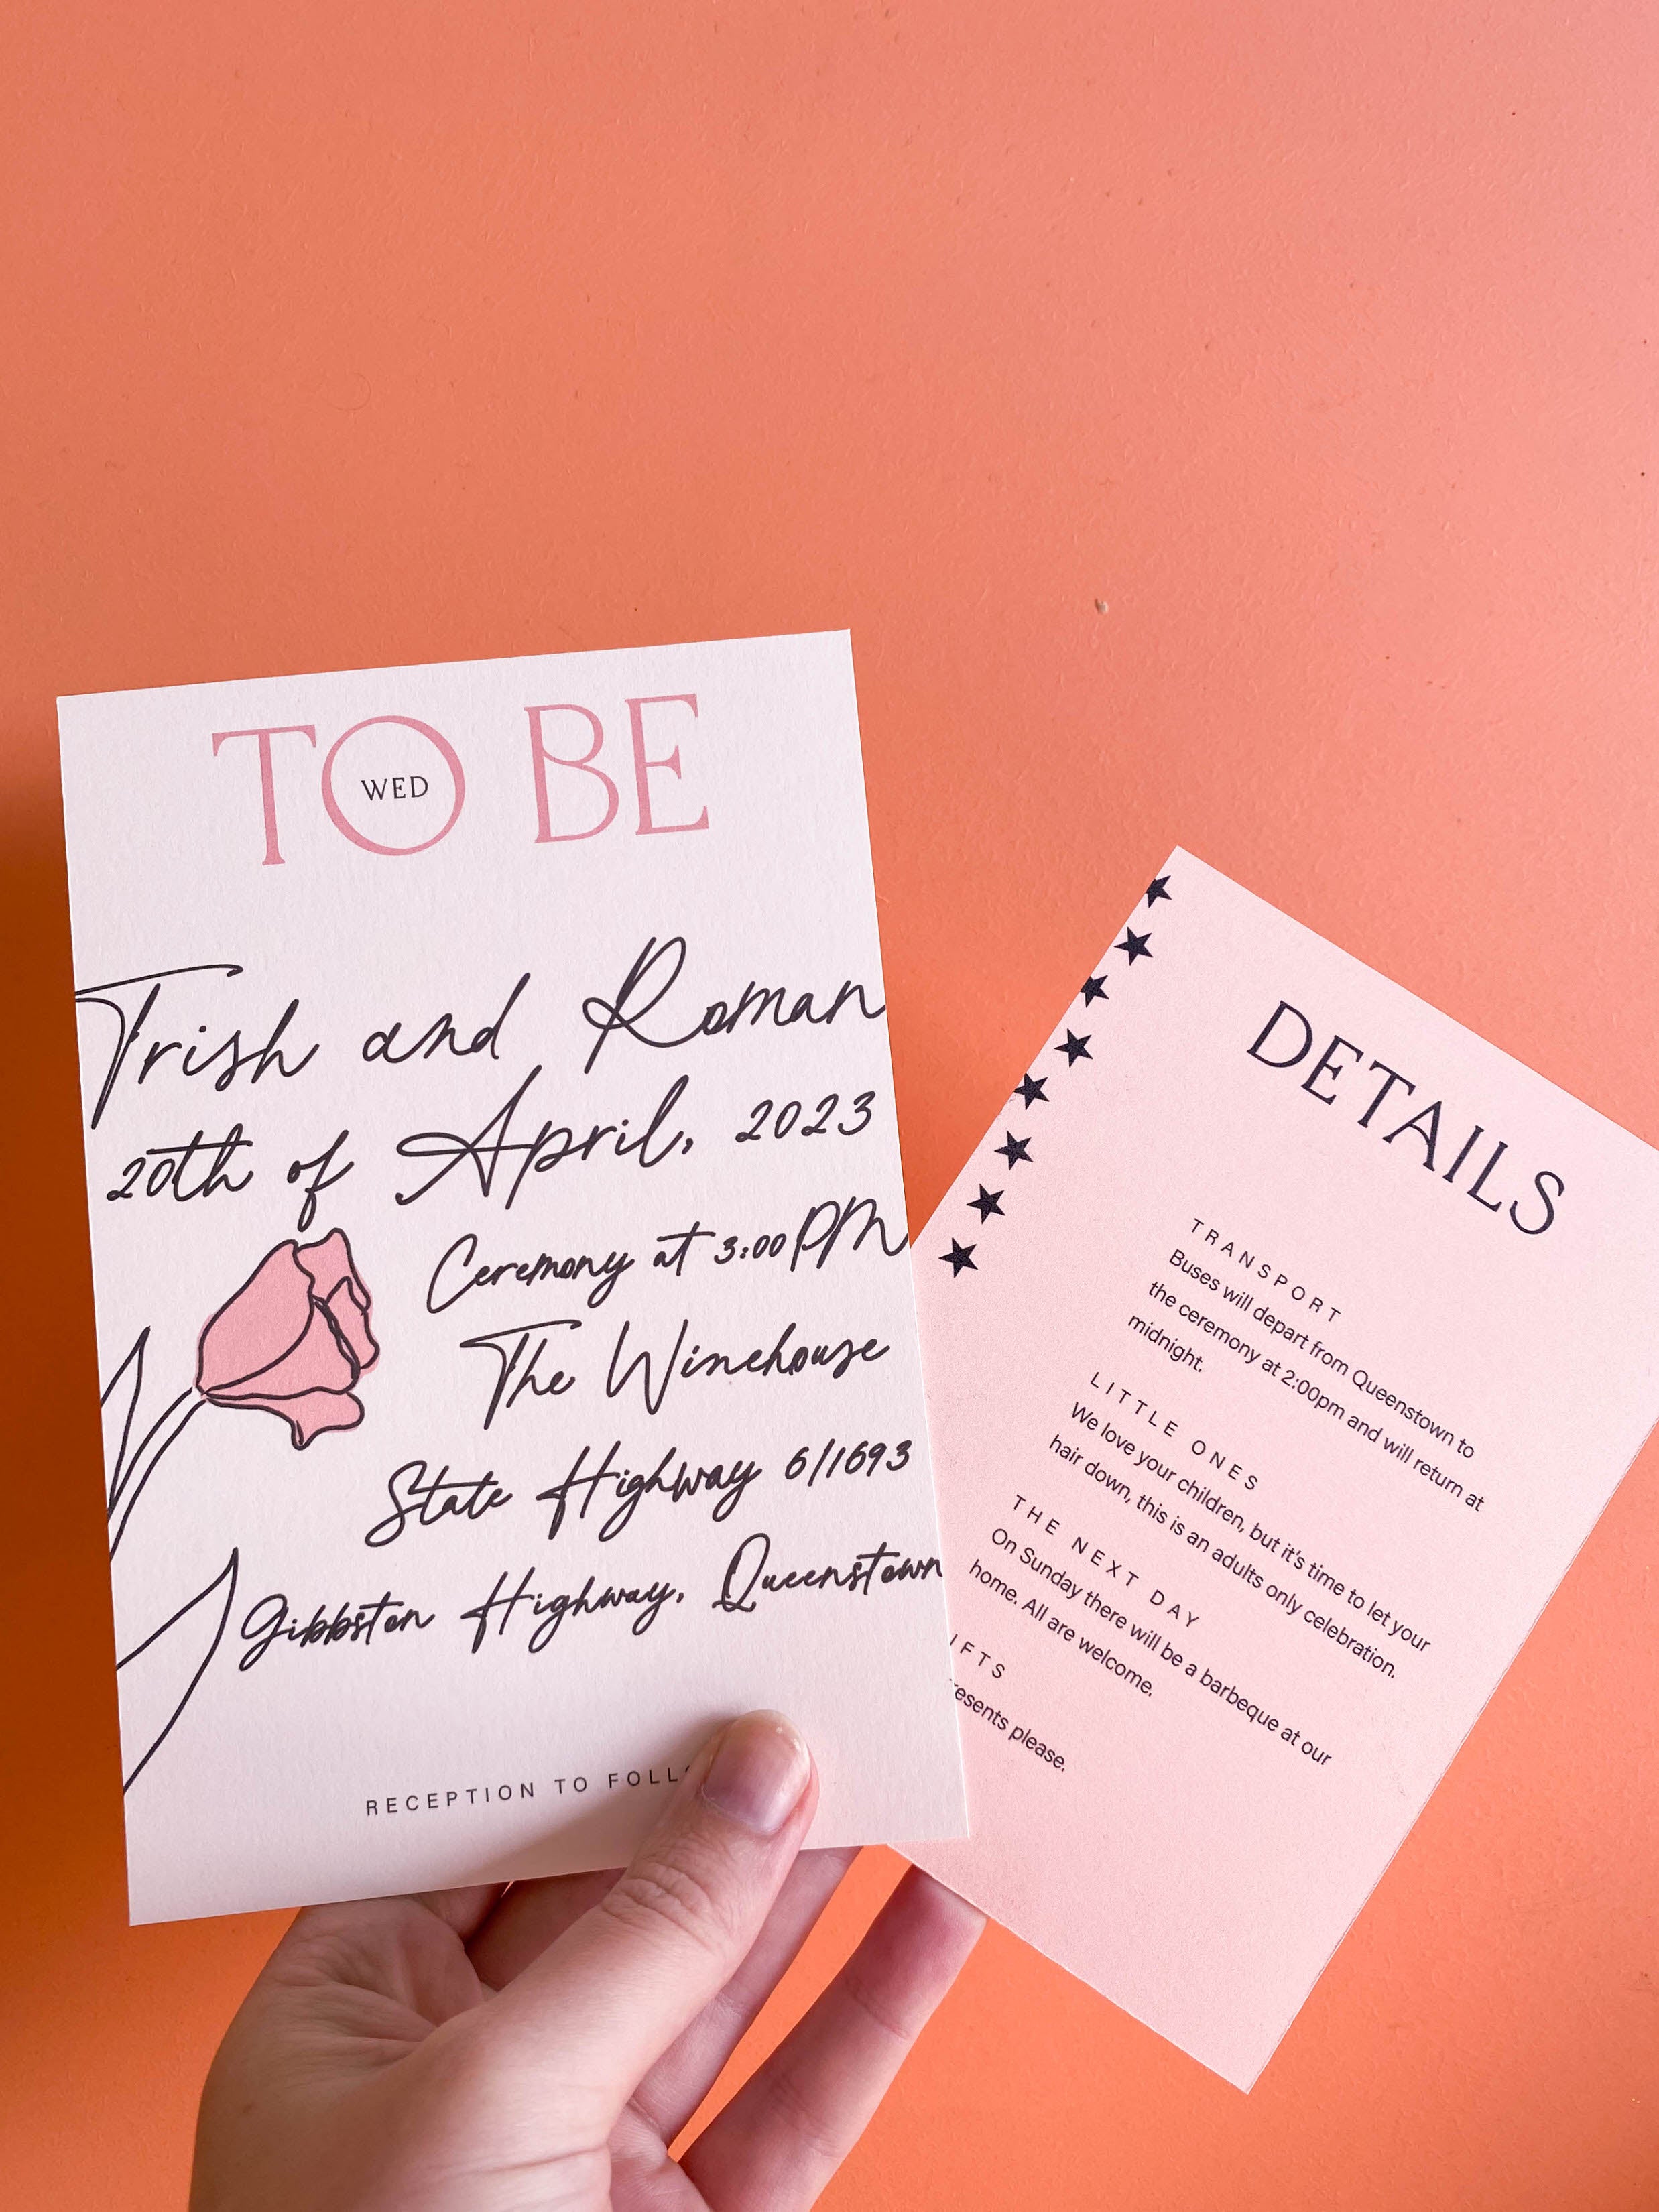 TO BE
WED
Trish and Roman
20th of April, 2023
Ceremony at 3:00PM
The Winehouse
State Highway 6/1693
Gibbston Highway, Queenstown
RECEPTION TO
DETAILS
TRANSPORT
Buses will depart from Queenstown to
the ceremony at 2:00pm and will return at
midnight.
LITTLE ONES
We love your children, but it's time to let your
hair down, this is an adults only celebration.
THE NEXT DAY
On Sunday there will be a barbeque at our
home. All are welcome.
please.